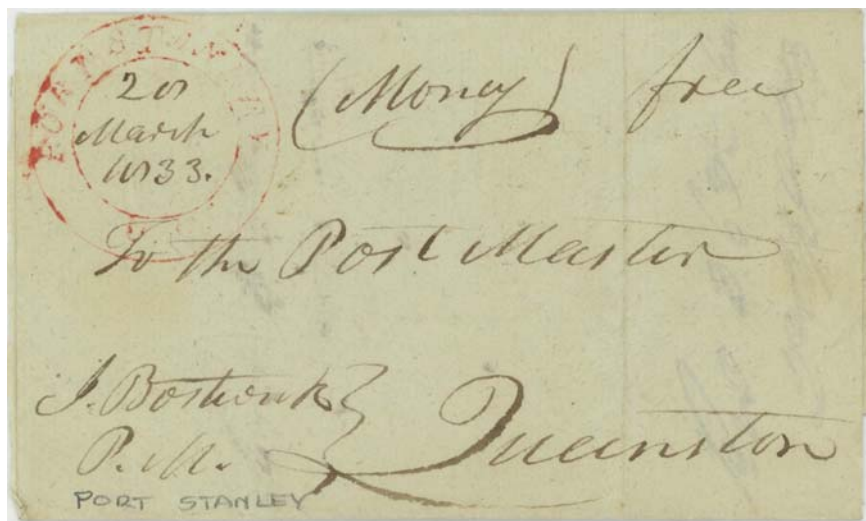 PORT STANLEY
28
March
1833.
(Money) free
To the Post Master
J. Bostwick
P.M.
Queenston
PORT STANLEY